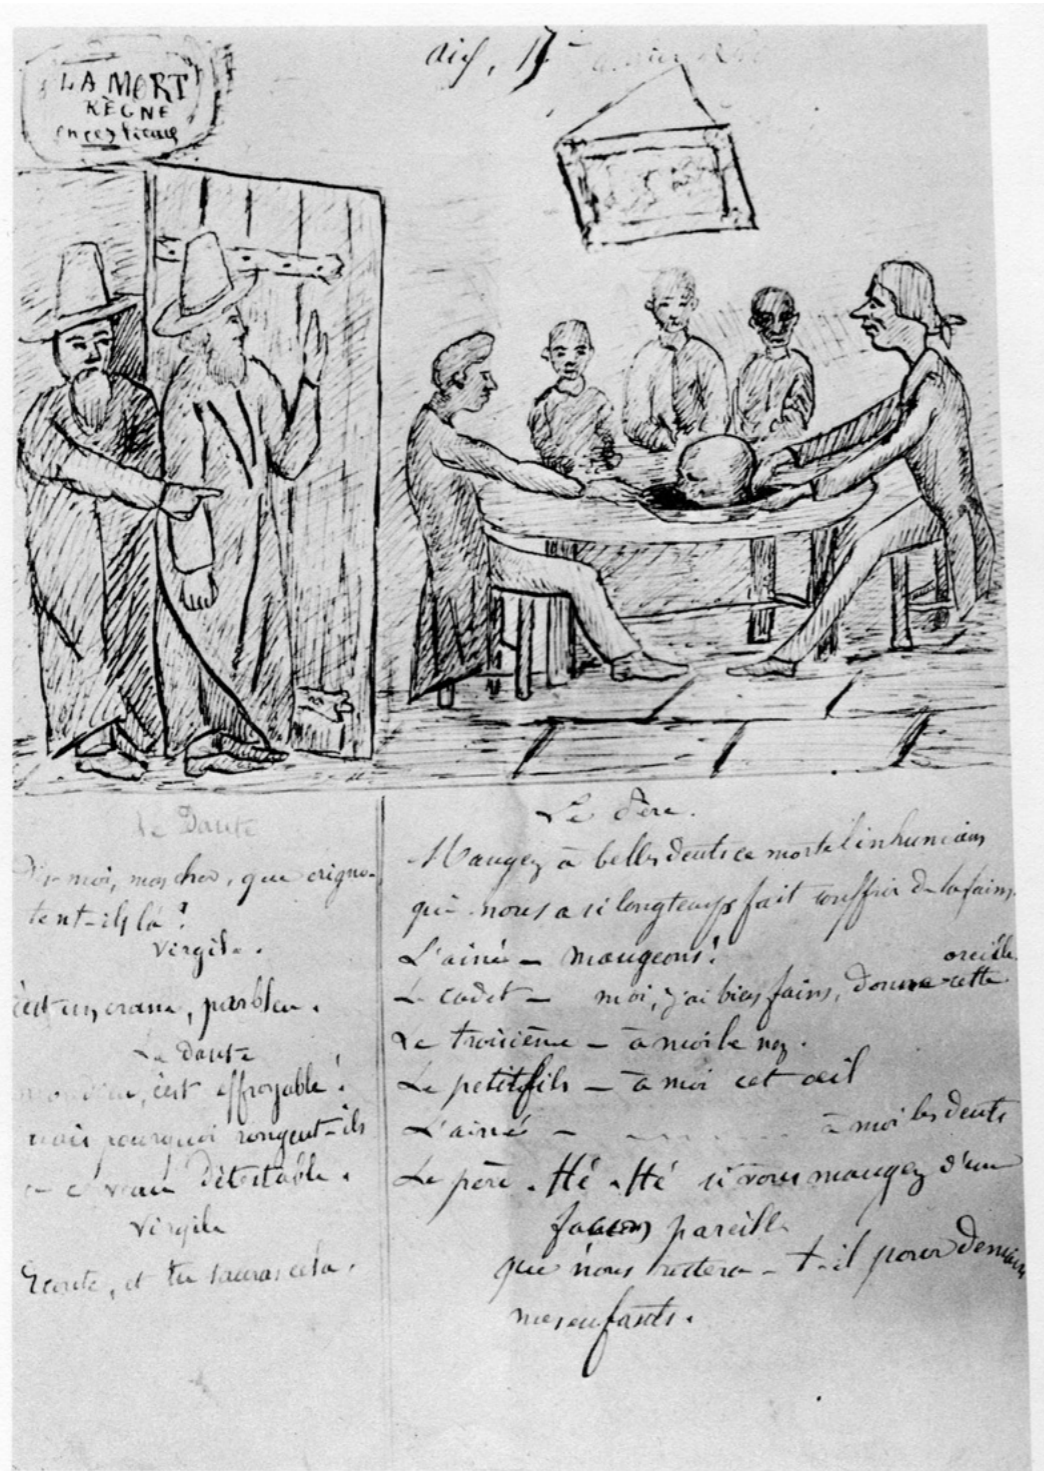 LA MORT
RÈGNE
en ces lieux
aix, 17
Le Dante
Dis-moi, mon cher, que grigno-
tent-ils là ?
Virgile.
C'est un crane, parbleu.
Le Dante
mon Dieu, c'est effroyable !
mais pourquoi rongent-ils
ce cerveau détestable.
Virgile
Ecoute, et tu sauras cela.
Le Père.
Mangez à belles dents ce mortel inhumain
qui nous a si longtemps fait souffrir de la faim.
L'ainé - mangeons !
Le cadet - moi, j'ai bien faim, donne cette oreille
Le troisième - à moi le nez.
Le petit fils - à moi cet œil
L'ainé - à moi les dents
Le père. Hé - Hé si vous mangez d'une
façon pareille
que nous restera-t-il pour demain
mes enfants.